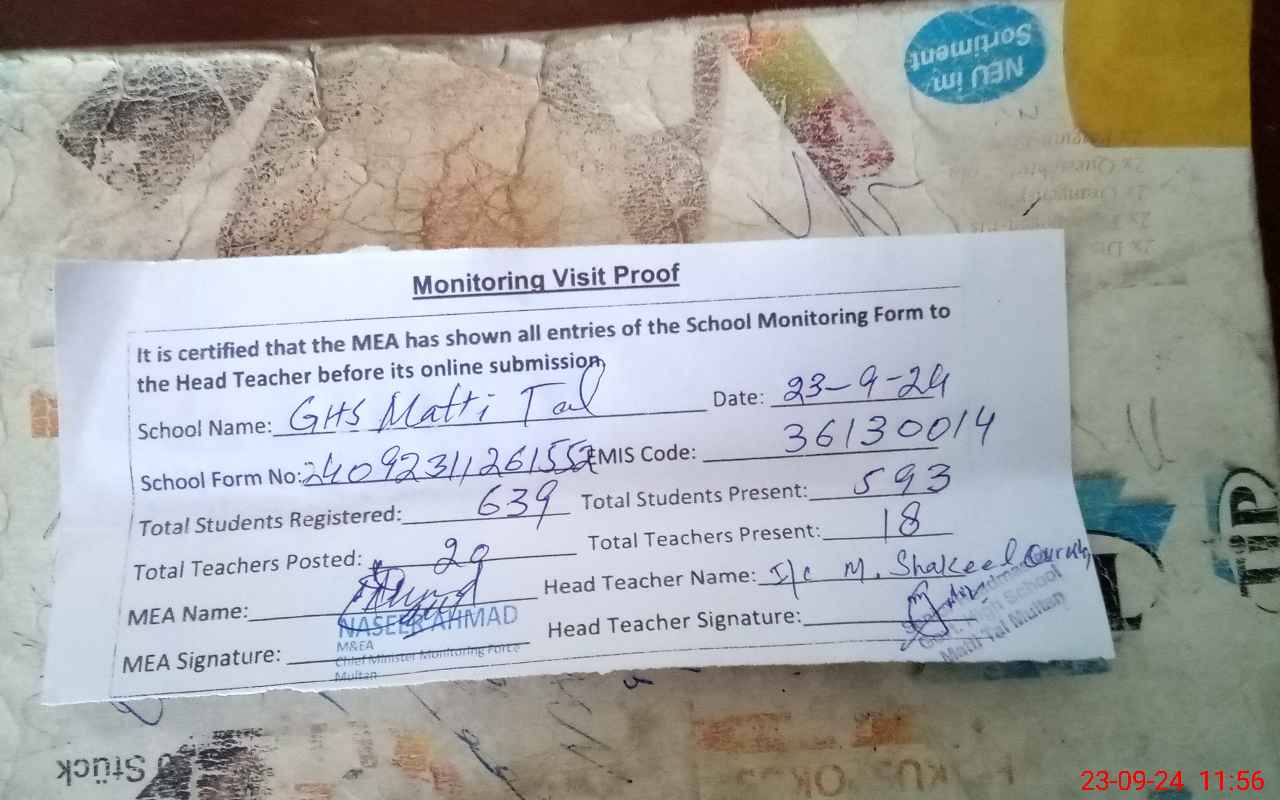 NEU im
Sortiment
Monitoring Visit Proof
It is certified that the MEA has shown all entries of the School Monitoring Form to
the Head Teacher before its online submission
School Name: GHS Matti Tal Date: 23-9-24
School Form No: 24092311261552 EMIS Code: 36130014
Total Students Registered: 639 Total Students Present: 593
Total Teachers Posted: 20 Total Teachers Present: 18
MEA Name: Head Teacher Name: I/c M. Shakeel
NASEER AHMAD
M&EA
Chief Minister Monitoring Force
Multan
MEA Signature: Head Teacher Signature:
Govt. High School
Matti Tal Multan
Stück
23-09-24 11:56